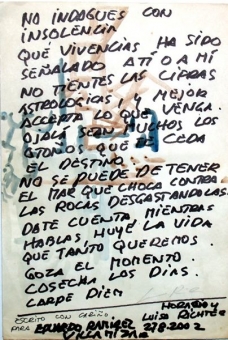 NO INDAGUES CON
INSOLENCIA
QUÉ VIVENCIAS HA SIDO
SEÑALADO A TÍ O A MÍ
NO TIENTES LAS CIFRAS
ASTROLÓGICAS, Y MEJOR
ACCEPTA LO QUE VENGA.
OJALÁ SEAN MUCHOS LOS
OTOÑOS QUE TE CEDA
EL DESTINO.
NO SE PUEDE DETENER
EL MAR QUE CHOCA CONTRA
LAS ROCAS DESGASTANDOLAS.
DATE CUENTA, MIENTRAS
HABLAS HUYE LA VIDA
QUE TANTO QUEREMOS.
GOZA EL MOMENTO.
COSECHA LOS DÍAS.
CARPE DIEM
HORACIO Y
LUISA RICHTER
ESCRITO CON CARIÑO
27-8-2002
PARA EDUARDO RAMIREZ
VILLAMIZAR